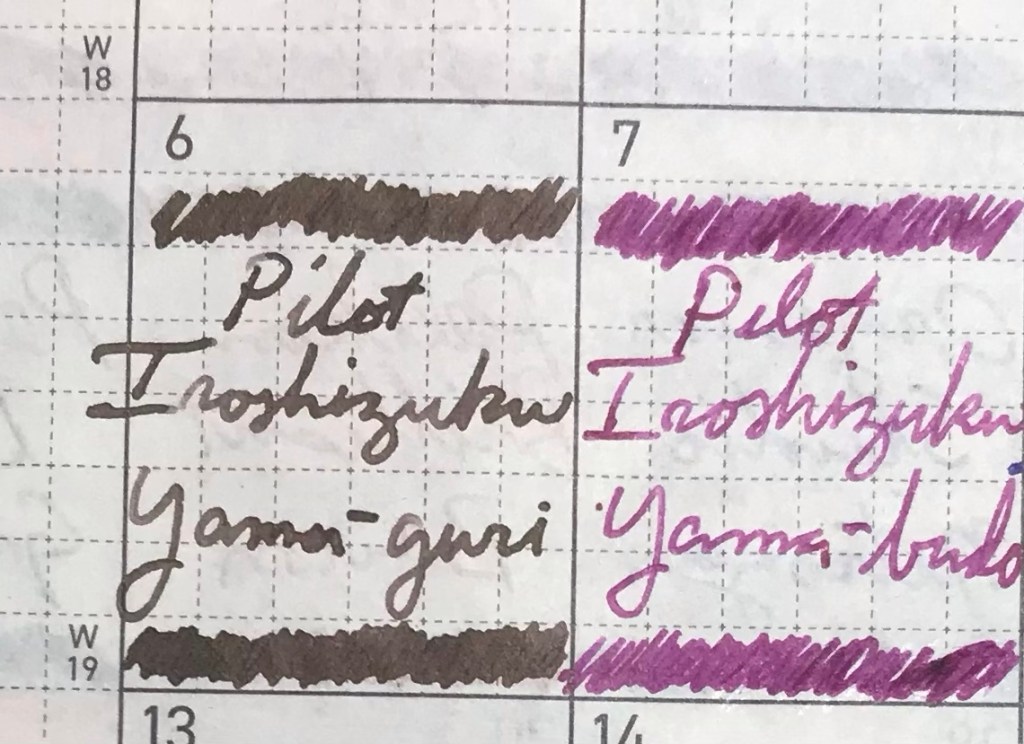 W
18
6
7
Pilot
Iroshizuku
Yama-guri
Pilot
Iroshizuku
Yama-budo
W
19
13
14